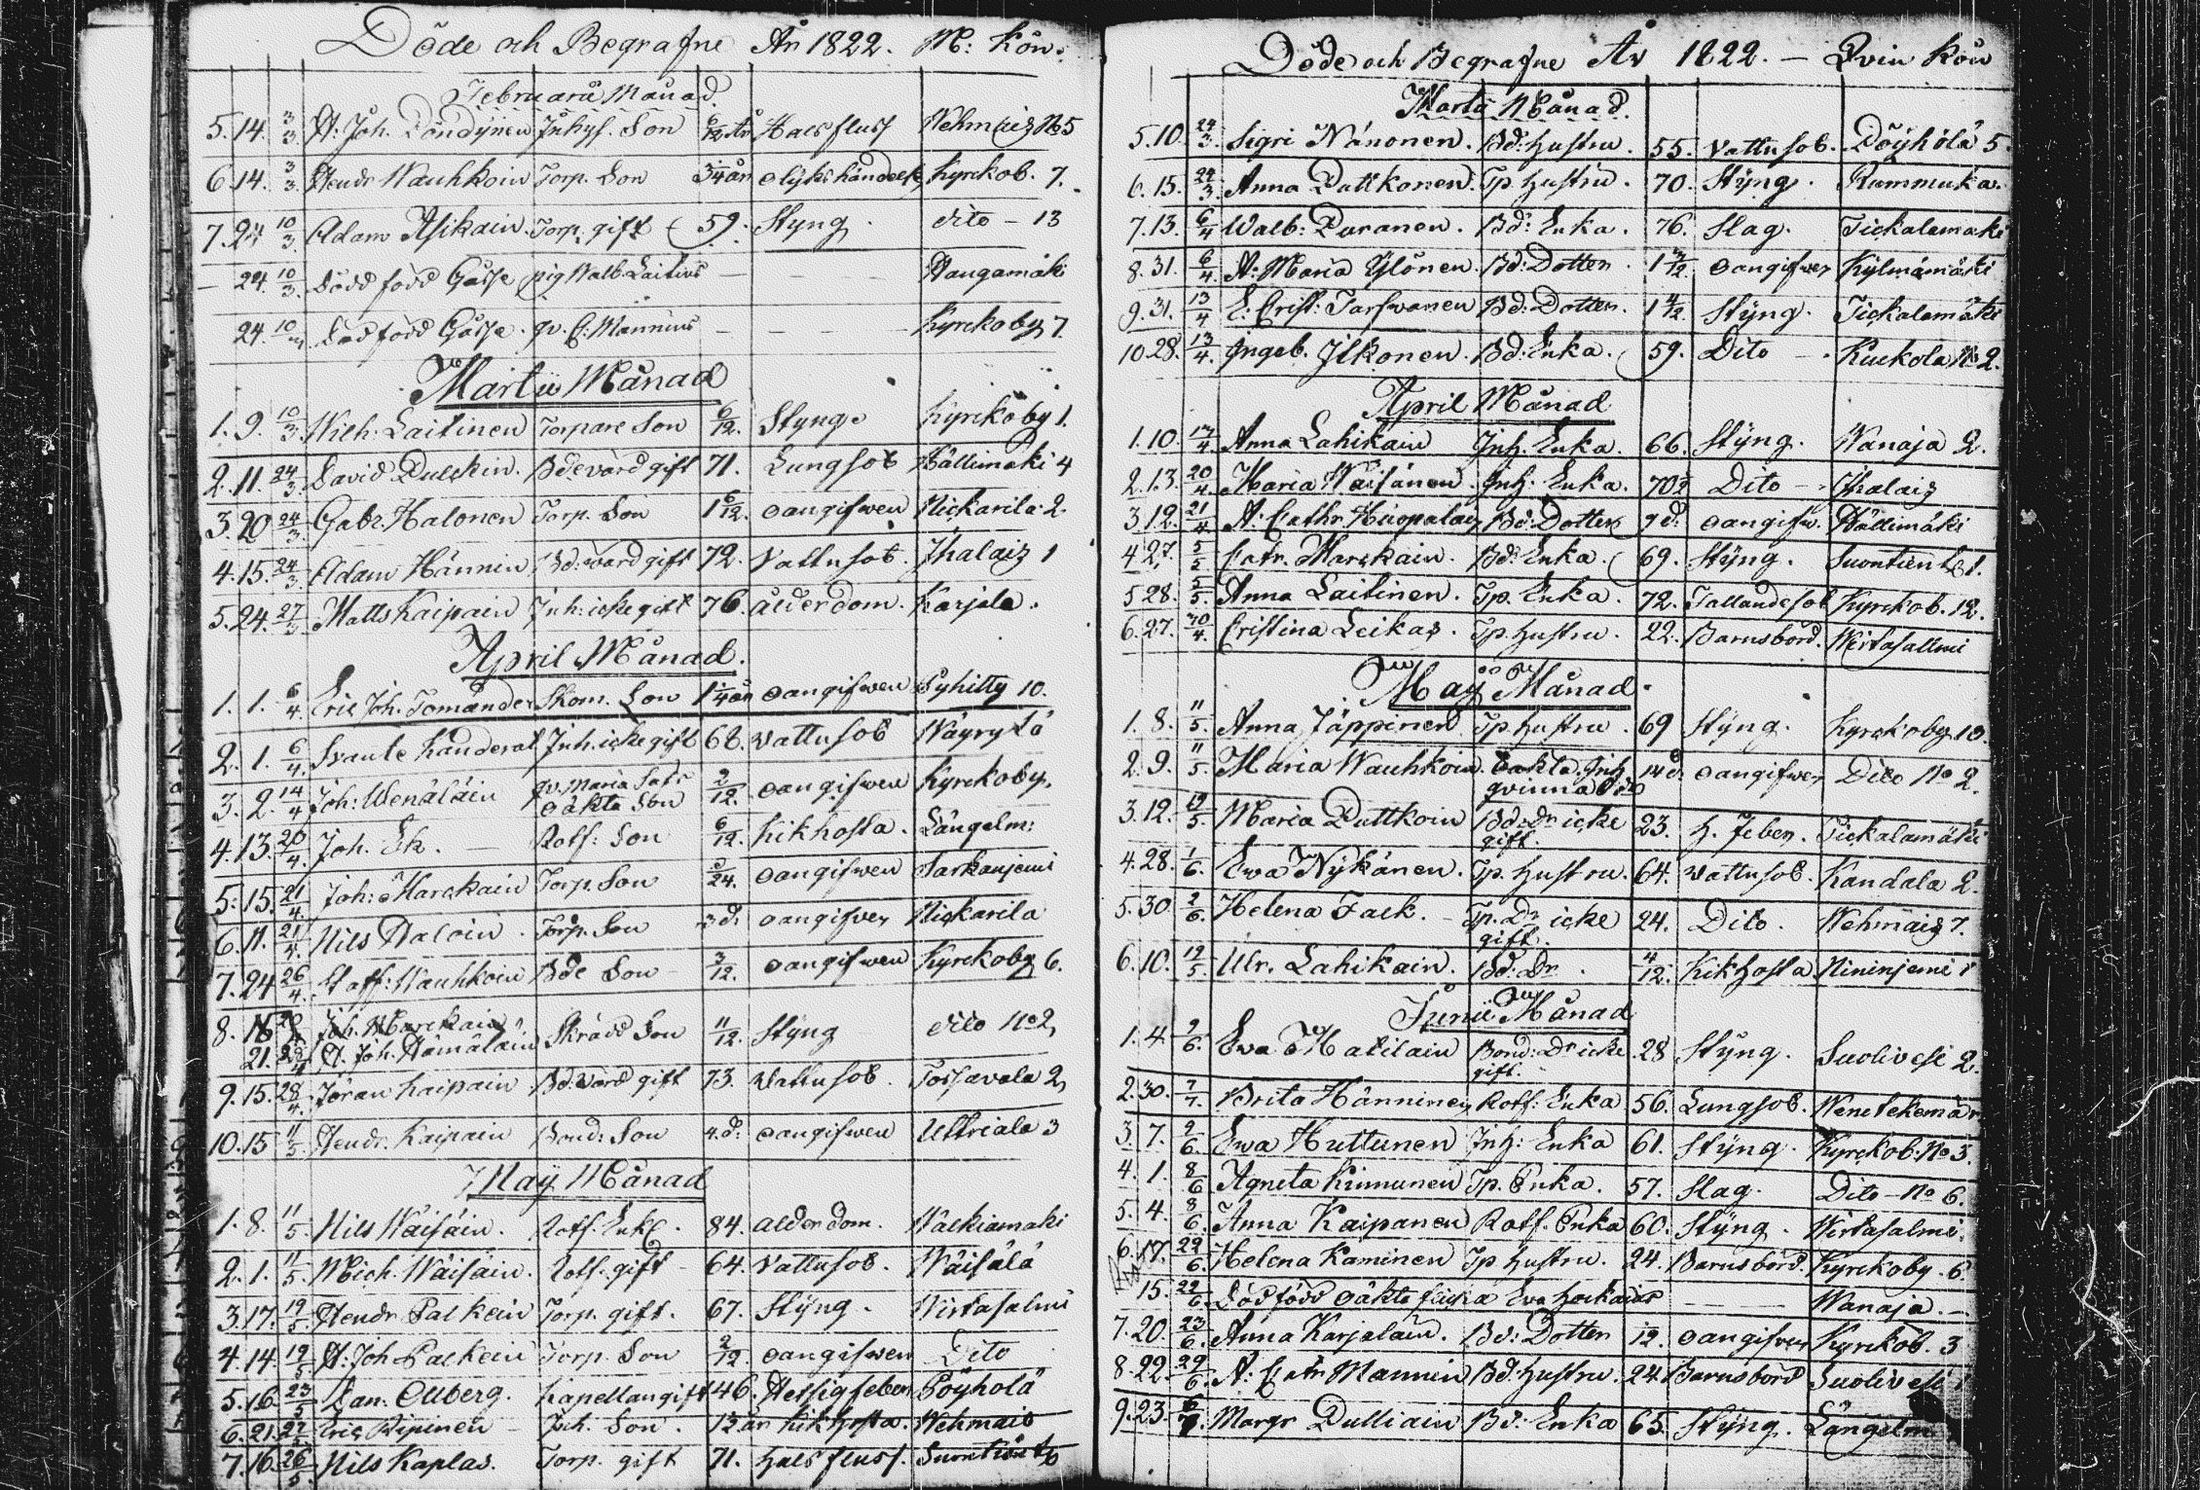 Döde och Begrafne År 1822. M: Kön.
Februarii Månad.
5. 14. 3/3 A: Joh. Pöndynen Inhys. Son 6/12 år Halsfluss Wehmais No 5
6. 14. 3/3 Hendr Wauhkoin Torp. Son 3 1/4 år olykshändelse Kyrckob. 7.
7. 24 10/3 Adam Asikain Torp. gift 59. Styng. dito - 13
- 24. 10/3. Dödd född Gåsse pig Walb. Laitins - - - Haugamäki
24. 10/3 Död född Gåsse. qv. C. Mannins - - - Kyrckoby 7.
Martii Månad
1. 9. 10/3. Wilh: Laitinen Torpare Son 6/12. Styng. Kyrckoby 1.
2. 11. 24/3. David Pulskin. Bde värd gift 71. Lungsot Hällimäki 4
3. 20 24/3 Gabr. Halonen Torp. Son 1 6/12. oangifwen Nickarila 2.
4. 15. 24/3 Adam Hännin Bd: wärd gift 72. Vattusot. Ihalais 1
5. 24. 27/3 Matts Kaipain Inh: icke gift 76. ålderdom. Karjala.
April Månad.
1. 1. 6/4. Eric Joh. Tomander Skom. Son 1 1/4 år oangifwen Pyhitty 10.
2. 1. 6/4. Svante Händerat Inh. icke gift 68. vattusot Wäyrylä
3. 2. 14/4 Joh: Wenäläin qv. Maria
oäkta Son 2/12. oangifwen Kyrckoby.
4. 13. 20/4. Joh. Ek. - Rotf: Son 6/12. Kikhosta. Längelm:
5. 15. 21/4 Joh: Marckain Torp Son 24. oangifwen Sarkanjemi
6. 11. 21/4. Nils Haloin. Torp. Son 3 d. oangifven Nickarila
7. 24 26/4. Staff: Wauhkoin Bde Son - 3/12. oangifwen Kyrckoby 6.
8. Joh. Marckain
21. A. Joh. Hämäläin Skrädd Son 11/12. Styng dito No 2,
9. 15. 28/4. Jöran Kaipain Bd. Värd gift 73. Vattusot. Torsavala 2,
10. 15 11/5 Hendr. Kaipain Bond: Son 4. d: oangifwen Uttriala 3
May Månad
1. 8. 11/5. Nils Wäisäin. Rotf. Enkl. 84. ålderdom. Valkiamäki
2. 1. 11/5. Mich. Wäisäin. Rotf. gift - 64. Vattusot. Wäisälä
3. 17. 19/5. Hendr Parkein Torp. gift. 67. Styng. Virtasalmi
4. 14. 19/5 A: Joh Parkein Torp. Son 2/12. oangifwen Dito
5. 16. 23/5 Dan: Ollberg. Kapellan gift 46. Hetsig feber Pöyhölä
6. 21. 27/5 Eric Ripinen - Inh. Son. 1 1/2 år Kikhosta. Wehmais
7. 16. 26/5. Nils Kaplas. Torp. gift 71. Halsfluss.
Döde och Begrafne År 1822. - Qvin Kön
Martii Månad.
5. 10. 24/3. Sigri Nänonen. Bd: hustru. 55. Vattusot. Pöyhölä 5.
6. 15. 24/3. Anna Puttkonen. Tp. hustru. 70. Styng. Rummuka.
7. 13. 6/4 Walb: Puranen. Bd: Enka. 76. Slag. Tickalamäki
8. 31. 6/4 A: Maria Ylönen. Bd: Dotter. 1 3/12. oangifwen Kylmämäki
9. 31. 13/4 E. Crist: Tarfwanen Bd: Dotter. 1 4/12. Styng. Tickalamäki
10 28. 13/4. Ingeb. Ilkonen. Bd: Enka. 59. Dito -. Kuckola No 2.
April Månad
1. 10. 14/4. Anna Lahikain Inh. Enka. 66. Styng. Wanaja 2.
2. 13. 20/4. Maria Wäisänen. Inh: Enka. 70 1/2 Dito - Ihalais
3. 12. 21/4 A: Cathr. Huopalain Bd: Dotter 9 d: oangifw. Hällimäki
4 27. 5/5 Catr. Marckain. Bd: Enka. 69. Styng. Suontient 1.
5 28. 5/5. Anna Laitinen. Tp. Enka. 72. Fallandesot Kyrckob. 12.
6. 27. 30/4. Cristina Leikas. Tp. hustru. 22. Barnsbörd. Wirtasallmi
May Månad.
1. 8. 11/5. Anna Jäppinen Tp. hustru. 69 Styng. Kyrckoby 10.
2. 9. 11/5. Maria Wauhkoin. oäkta. Inh
qvinna Dr 14 d. oangifwen Dito No 2.
3. 12. 19/5. Maria Puttkoin Bd: Dr icke
gift. 23. h. feber. Tickalamäki
4. 28. 1/6. Ewa Nykänen. Tp. hustru. 64. vattusot. Kandala 2.
5. 30 2/6. Helena Falk. - Tp. Dr icke
gift. 24. Dito. Wehmais 7.
6. 10. 19/5. Ulr. Lahikain. Bd: Dr. 4/12. Kikhosta Nininjemi 1
Junii Månad
1. 4 2/6. Ewa Matilain Bond: Dr icke
gift. 28 Styng. Suolivesi 2.
2. 30. 7/7. Brita Hänninen Rotf: Enka 56. Lungsot. Wenetekemä
3. 7. 2/6. Ewa Huttunen Inh: Enka 61. Styng. Kyrckob: No 3.
4. 1. 8/6 Agneta Kinnunen Tp. Enka. 57. Slag. Dito - No 6.
5. 4. 8/6. Anna Kaipanen Rotf. Enka 60. Styng. Wirtasalmi.
6. 17. 22/6. Helena Kaminen Tp hustru. 24. Barnsbörd. Kyrckoby. 6.
15. 22/6. Död född oäkta flicka Ewa - Wanaja. -
7. 20. 23/6. Anna Karjalain. Bd: Dotter 12. oangifven Kyrckob. 3
8. 22. 29/6. A: Catr Mannin Bd: hustru. 24 Barnsbörd Suolivesi 1
9. 23. Margr Pulliain Bd: Enka 65. Styng. Längelm